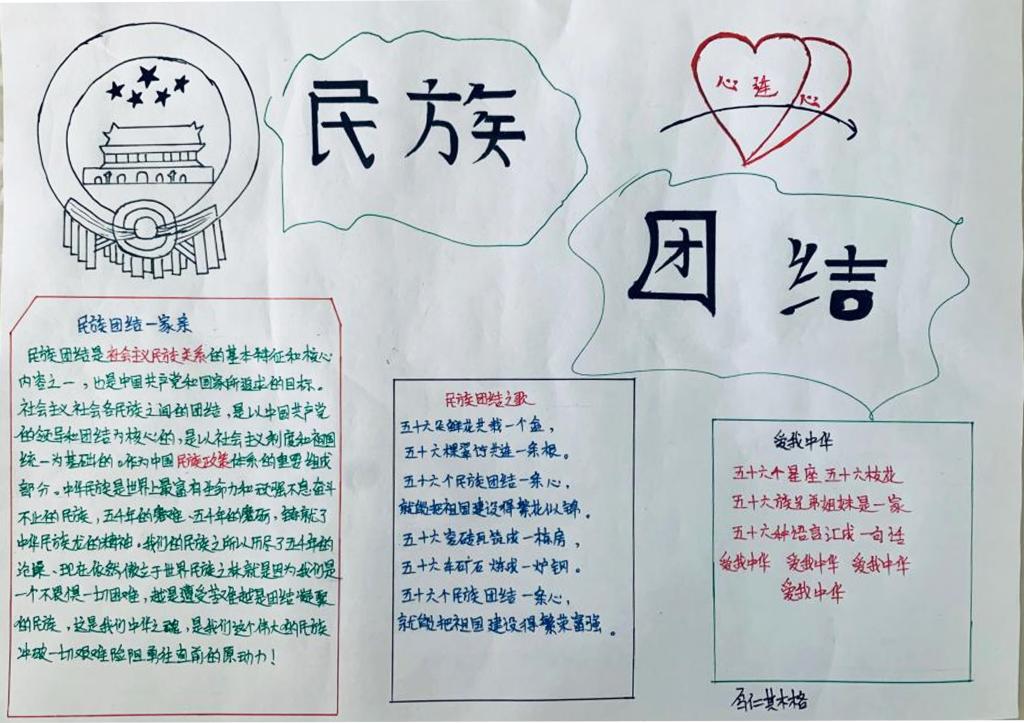 民族
心连心
团结
民族团结一家亲
民族团结是社会主义民族关系的基本特征和核心
内容之一，也是中国共产党和国家所追求的目标。
社会主义社会各民族之间的团结，是以中国共产党
的领导和团结为核心的，是以社会主义制度和祖国
统一为基础的。作为中国民族政策体系的重要组成
部分。中华民族是世界上最富有生命力和顽强不息奋斗
不止的民族，五千年的磨难、五千年的磨砺，铸就了
中华民族龙的精神。我们的民族之所以历尽了五千年的
沧桑、现在依然傲立于世界民族之林就是因为我们是
一个不畏惧一切困难，越是遭受苦难越是团结凝聚
的民族，这是我们中华之魂，是我们这个伟大的民族
冲破一切艰难险阻勇往直前的原动力！
民族团结之歌
五十六朵鲜花共栽一个盆，
五十六棵翠竹共连一条根。
五十六个民族团结一条心，
就能把祖国建设得繁花似锦。
五十六窑砖瓦筑成一栋房，
五十六车矿石炼成一炉钢。
五十六个民族团结一条心，
就能把祖国建设得繁荣富强。
爱我中华
五十六个星座五十六枝花
五十六族兄弟姐妹是一家
五十六种语言汇成一句话
爱我中华 爱我中华 爱我中华
爱我中华
仁其木格